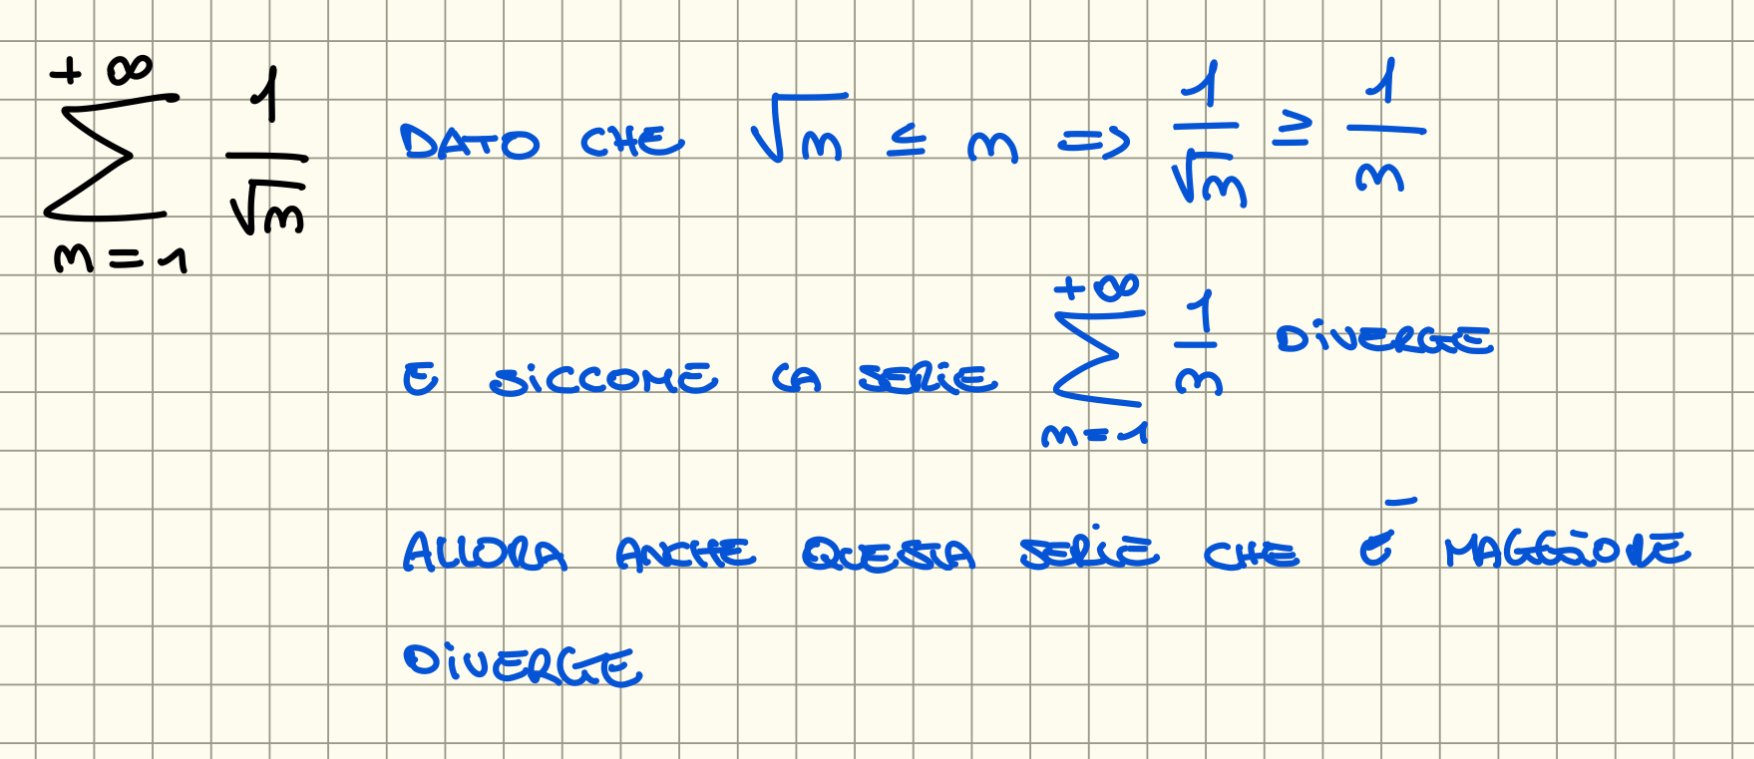 +∞ ∑ m=1 1/√m DATO CHE √m ≤ m => 1/√m ≥ 1/m
E SICCOME LA SERIE +∞ ∑ m=1 1/m DIVERGE
ALLORA ANCHE QUESTA SERIE CHE È MAGGIORE
DIVERGE